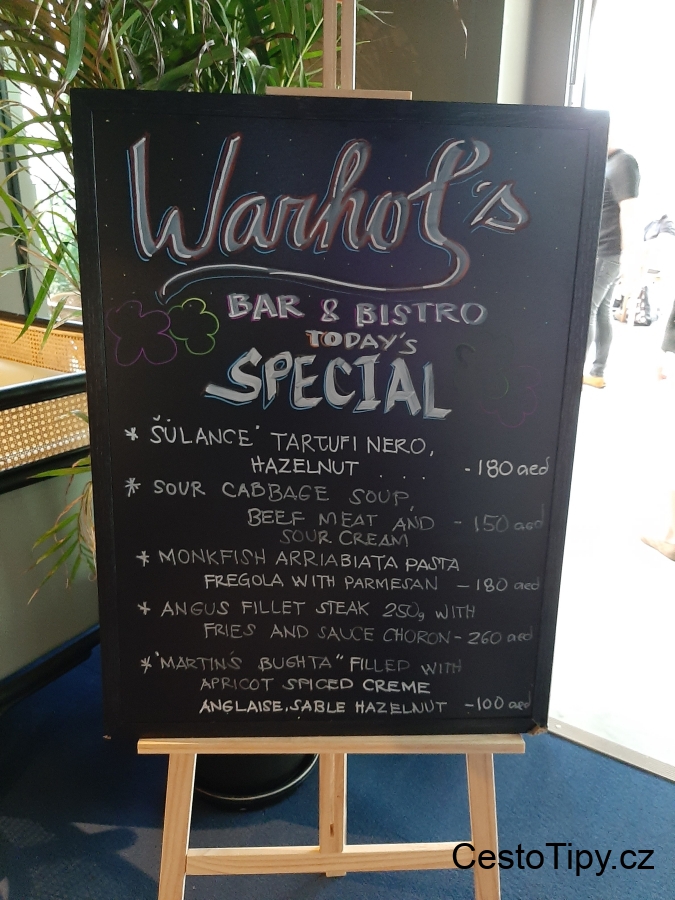 Warhol's
BAR & BISTRO
TODAY'S
SPECIAL
* ŠÚLANCE" TARTUFI NERO,
HAZELNUT . . . . -180 aed
* SOUR CABBAGE SOUP,
BEEF MEAT AND - 150 aed
SOUR CREAM
* MONKFISH ARRIABIATA PASTA
FREGOLA WITH PARMESAN - 180 aed
* ANGUS FILLET STEAK 250g WITH
FRIES AND SAUCE CHORON - 260 aed
* "MARTIN'S BUGHTA" FILLED WITH
APRICOT SPICED CREME
ANGLAISE, SABLE HAZELNUT -100 aed
CestoTipy.cz